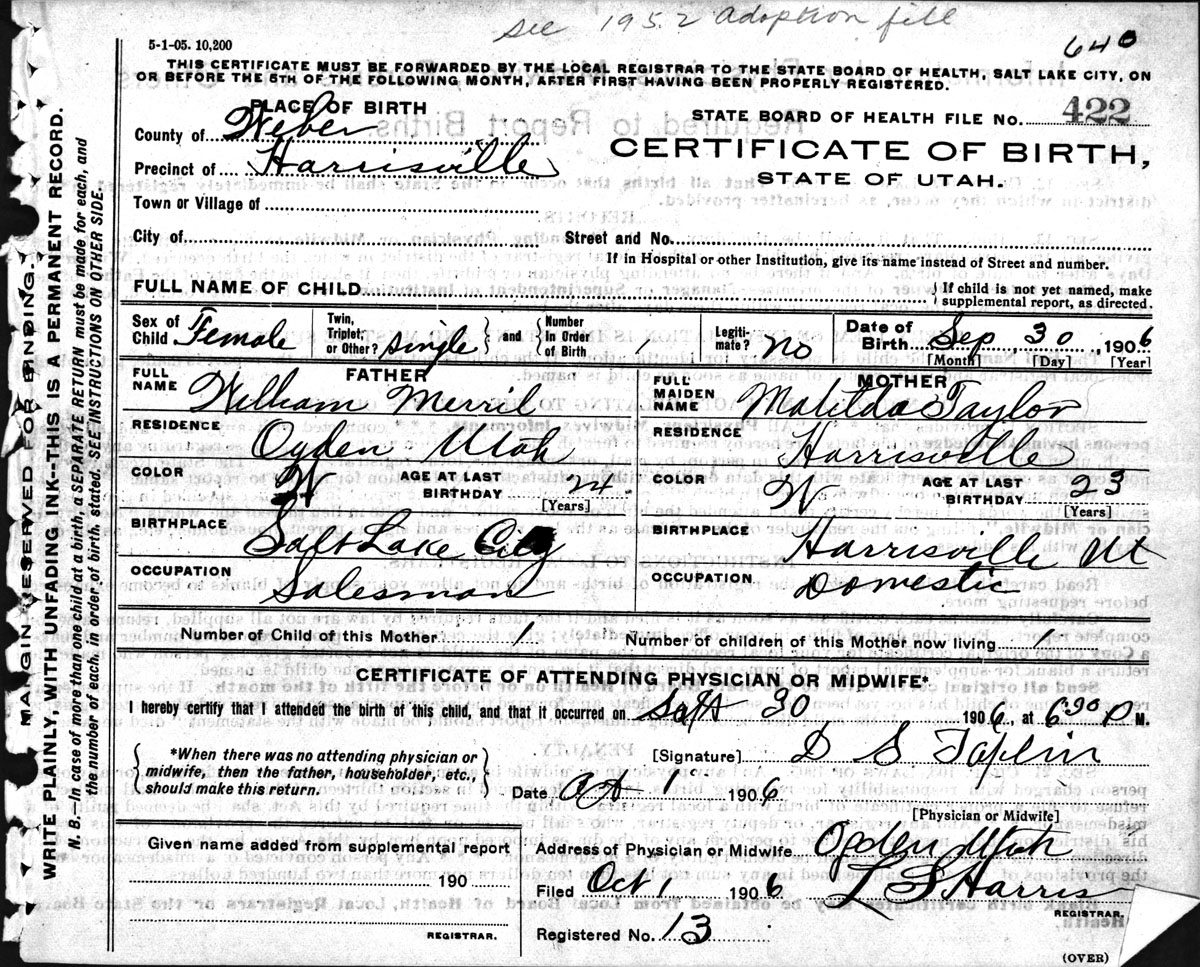 see 1952 adoption fill
5-1-05. 10,200
640
THIS CERTIFICATE MUST BE FORWARDED BY THE LOCAL REGISTRAR TO THE STATE BOARD OF HEALTH, SALT LAKE CITY, ON
OR BEFORE THE 5TH OF THE FOLLOWING MONTH, AFTER FIRST HAVING BEEN PROPERLY REGISTERED.
PLACE OF BIRTH
STATE BOARD OF HEALTH FILE NO. 422
County of Weber
CERTIFICATE OF BIRTH,
Precinct of Harrisville
STATE OF UTAH.
Town or Village of
City of Street and No.
If in Hospital or other Institution, give its name instead of Street and number.
FULL NAME OF CHILD
If child is not yet named, make
supplemental report, as directed.
Sex of Child Female
Twin, Triplet, or Other? single
and
Number In Order of Birth
Legiti-mate? no
Date of Birth Sep 30, 1906
[Month] [Day] [Year]
FATHER
FULL NAME William Merril
RESIDENCE Ogden Utah
COLOR W
AGE AT LAST BIRTHDAY 24
[Years]
BIRTHPLACE Salt Lake City
OCCUPATION Salesman
MOTHER
FULL MAIDEN NAME Matilda Taylor
RESIDENCE Harrisville
COLOR W
AGE AT LAST BIRTHDAY 23
[Years]
BIRTHPLACE Harrisville Ut
OCCUPATION Domestic
Number of Child of this Mother 1
Number of children of this Mother now living 1
CERTIFICATE OF ATTENDING PHYSICIAN OR MIDWIFE*
I hereby certify that I attended the birth of this child, and that it occurred on Sept 30 1906, at 6:30 P M.
*When there was no attending physician or
midwife, then the father, householder, etc.,
should make this return.
[Signature] D S Taplin
Date Oct 1 1906
[Physician or Midwife]
Given name added from supplemental report
190
REGISTRAR.
Address of Physician or Midwife Ogden Utah
Filed Oct 1 1906 L S Harris
REGISTRAR.
Registered No. 13
(OVER)
MARGIN RESERVED FOR BINDING.
WRITE PLAINLY, WITH UNFADING INK--THIS IS A PERMANENT RECORD.
N. B. In case of more than one child at a birth, a SEPARATE RETURN must be made for each, and
the number of each, in order of birth, stated. SEE INSTRUCTIONS ON OTHER SIDE.